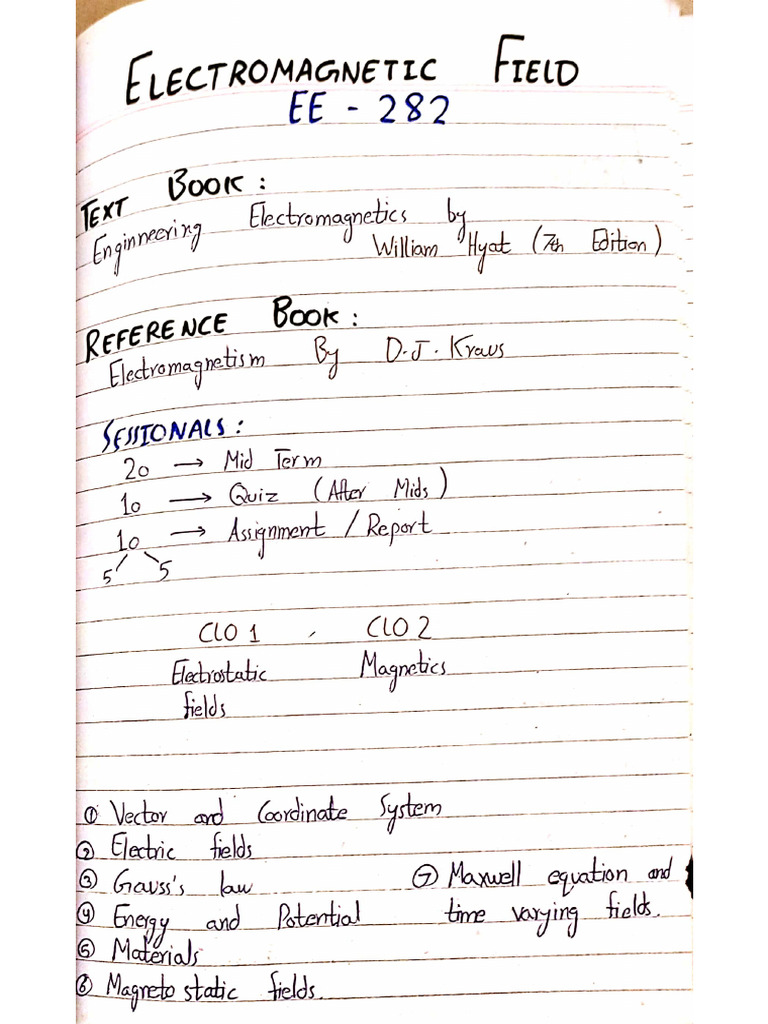 ELECTROMAGNETIC FIELD
EE - 282
TEXT BOOK :
Enginneering Electromagnetics by
William Hyat (7th Edition)
REFERENCE BOOK :
Electromagnetism By D.J. Kraus
SESSIONALS :
20 → Mid Term
10 → Quiz (After Mids)
10 → Assignment / Report
5 5
CLO 1 , CLO 2
Electrostatic Magnetics
fields
① Vector and Coordinate System
② Electric fields
③ Gauss's law
④ Energy and Potential
⑤ Materials
⑥ Magneto static fields.
⑦ Maxwell equation and
time varying fields.